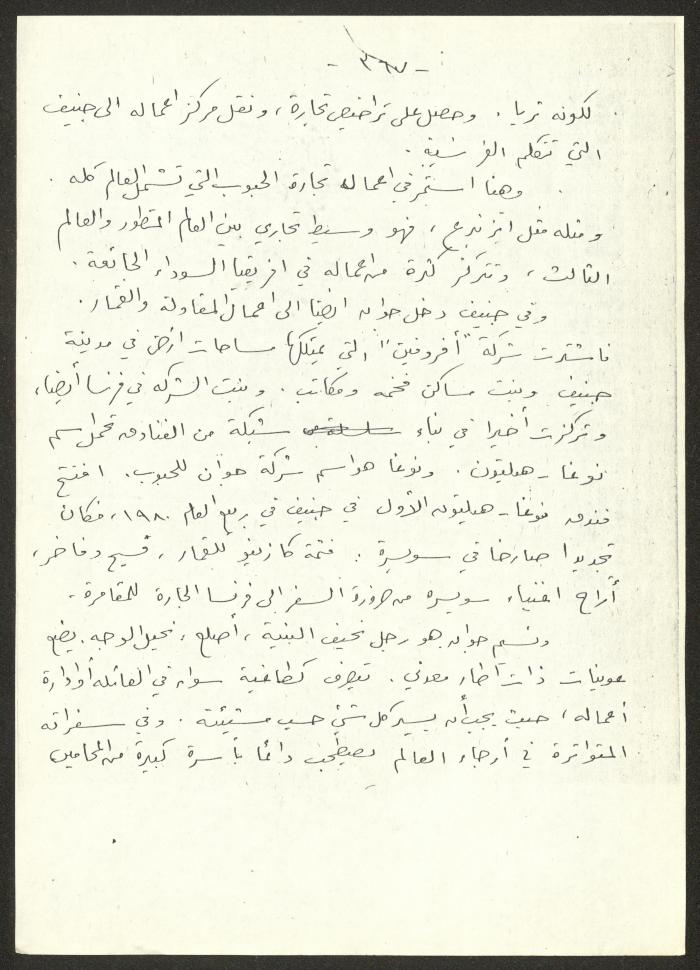 - ٣٦٧ -
لكونه ثريا . وحصل على تراخيص تجارة ، ونقل مركز اعماله الى جنيف
التي تتكلم الفرنسية .
وهنا استمر في اعماله تجارة الحبوب التي تشمل العالم كله .
ومثله مثل ايزنبرغ ، فهو وسيط تجاري بين العالم المتطور والعالم
الثالث ، وتتركز كثرة من اعماله في افريقيا السوداء الجائعة .
وفي جنيف دخل جوان ايضا الى اعمال المقاولة والقمار .
فاشترت شركة "أفروفين" التي يمتلكها مساحات ارض في مدينة
جنيف وبنت مساكن فخمه ومكاتب . وبنت الشركه في فرنسا أيضا ،
وتركزت أخيرا في بناء شبكة من الفنادق تحمل اسم
نوغا - هيلتون . ونوغا هو اسم شركة جوان للحبوب . افتتح
فندق نوغا - هيلتون الأول في جنيف في ربيع العام ١٩٨٠ ، فكان
تجديدا صارخا في سويسرة : فثمة كازينو للقمار ، فسيح وفاخر ،
أراح اغنياء سويسره من ضرورة السفر الى فرنسا الجارة للمقامرة .
ونسيم جوان هو رجل نحيف البنية ، أصلع ، نحيل الوجه . يضع
عوينات ذات اطار معدني . تصرف كطاغية سواء في العائله أو ادارة
أعماله ، حيث يجب أن يسير كل شئ حسب مشيئته . وفي سفراته
المتواترة في أرجاء العالم يصطحب دائما بأسرة كبيرة من المحامين